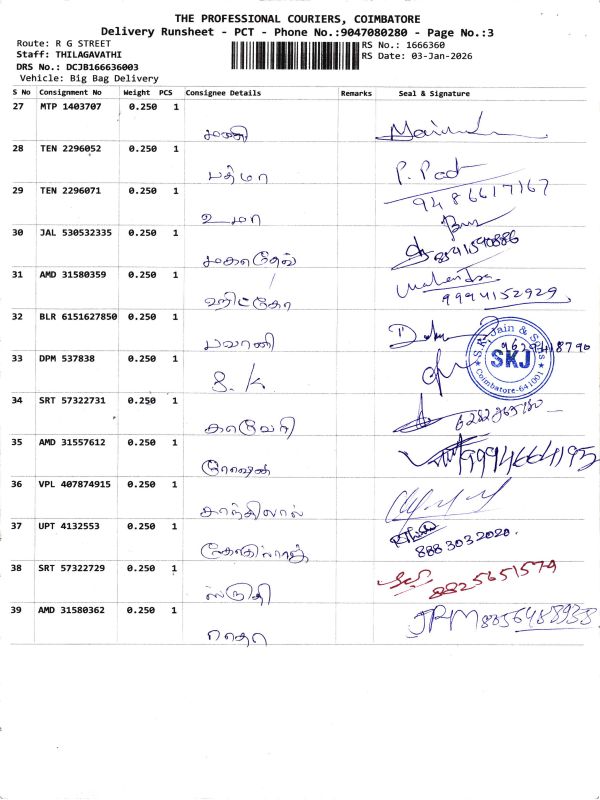 THE PROFESSIONAL COURIERS, COIMBATORE
Delivery Runsheet - PCT - Phone No.:9047080280 - Page No.:3
Route: R G STREET
Staff: THILAGAVATHI
DRS No.: DCJB166636003
Vehicle: Big Bag Delivery
RS No.: 1666360
RS Date: 03-Jan-2026
S No Consignment No Weight PCS Consignee Details Remarks Seal & Signature
27 MTP 1403707 0.250 1
மணி
28 TEN 2296052 0.250 1
பத்மா P. Pad
29 TEN 2296071 0.250 1 9486617167
உமா
30 JAL 530532335 0.250 1
மகாதேவ் 8541590886
31 AMD 31580359 0.250 1 Mahendra
9994152929
32 BLR 6151627850 0.250 1
பவானி 9629418790
S.K. Jain & Sons
SKJ
Coimbatore-641001
33 DPM 537838 0.250 1
S. K
34 SRT 57322731 0.250 1
காவேரி
35 AMD 31557612 0.250 1
9994664195
36 VPL 407874915 0.250 1
சாந்திலால்
37 UPT 4132553 0.250 1
8883032020.
38 SRT 57322729 0.250 1
ஸ்ருதி 8825651579
39 AMD 31580362 0.250 1
JPM 8856488938